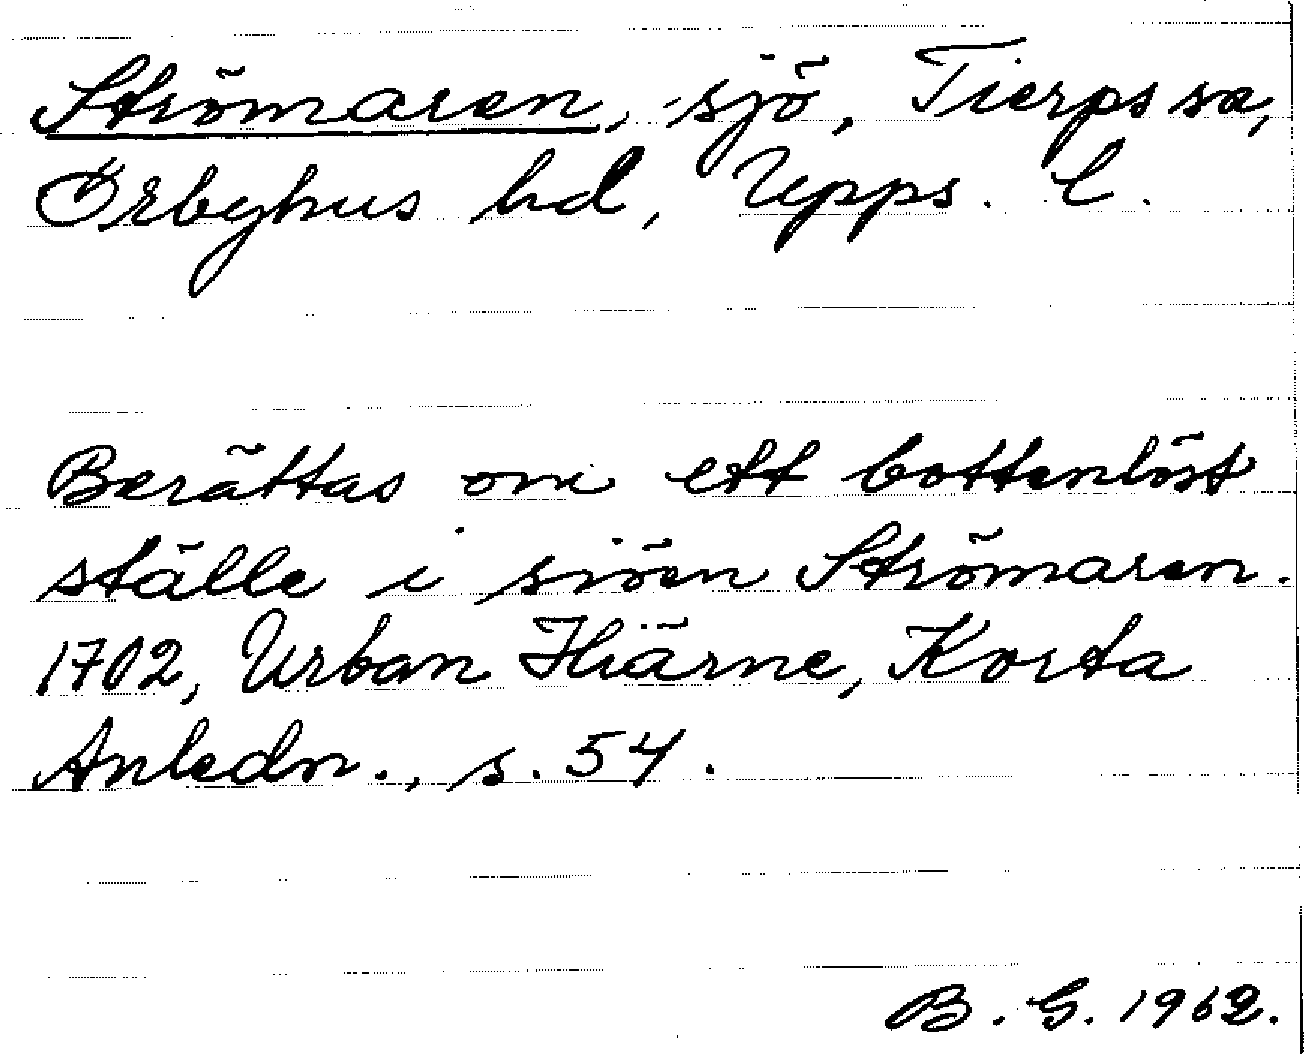 Strömaren, sjö, Tierps sn,
Örbyhus hd, Upps. l.
Berättas om ett bottenlöst
ställe i siöen Strömaren.
1702, Urban Hiärne, Korta
Anledn., s. 54.
B. G. 1962.